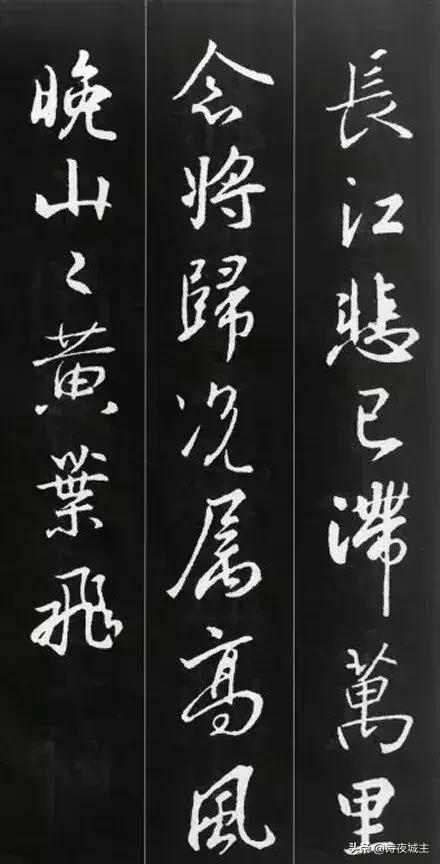 長江悲已滯萬里
念将歸况属高風
晚山〻黄葉飛
头条@诗夜城主